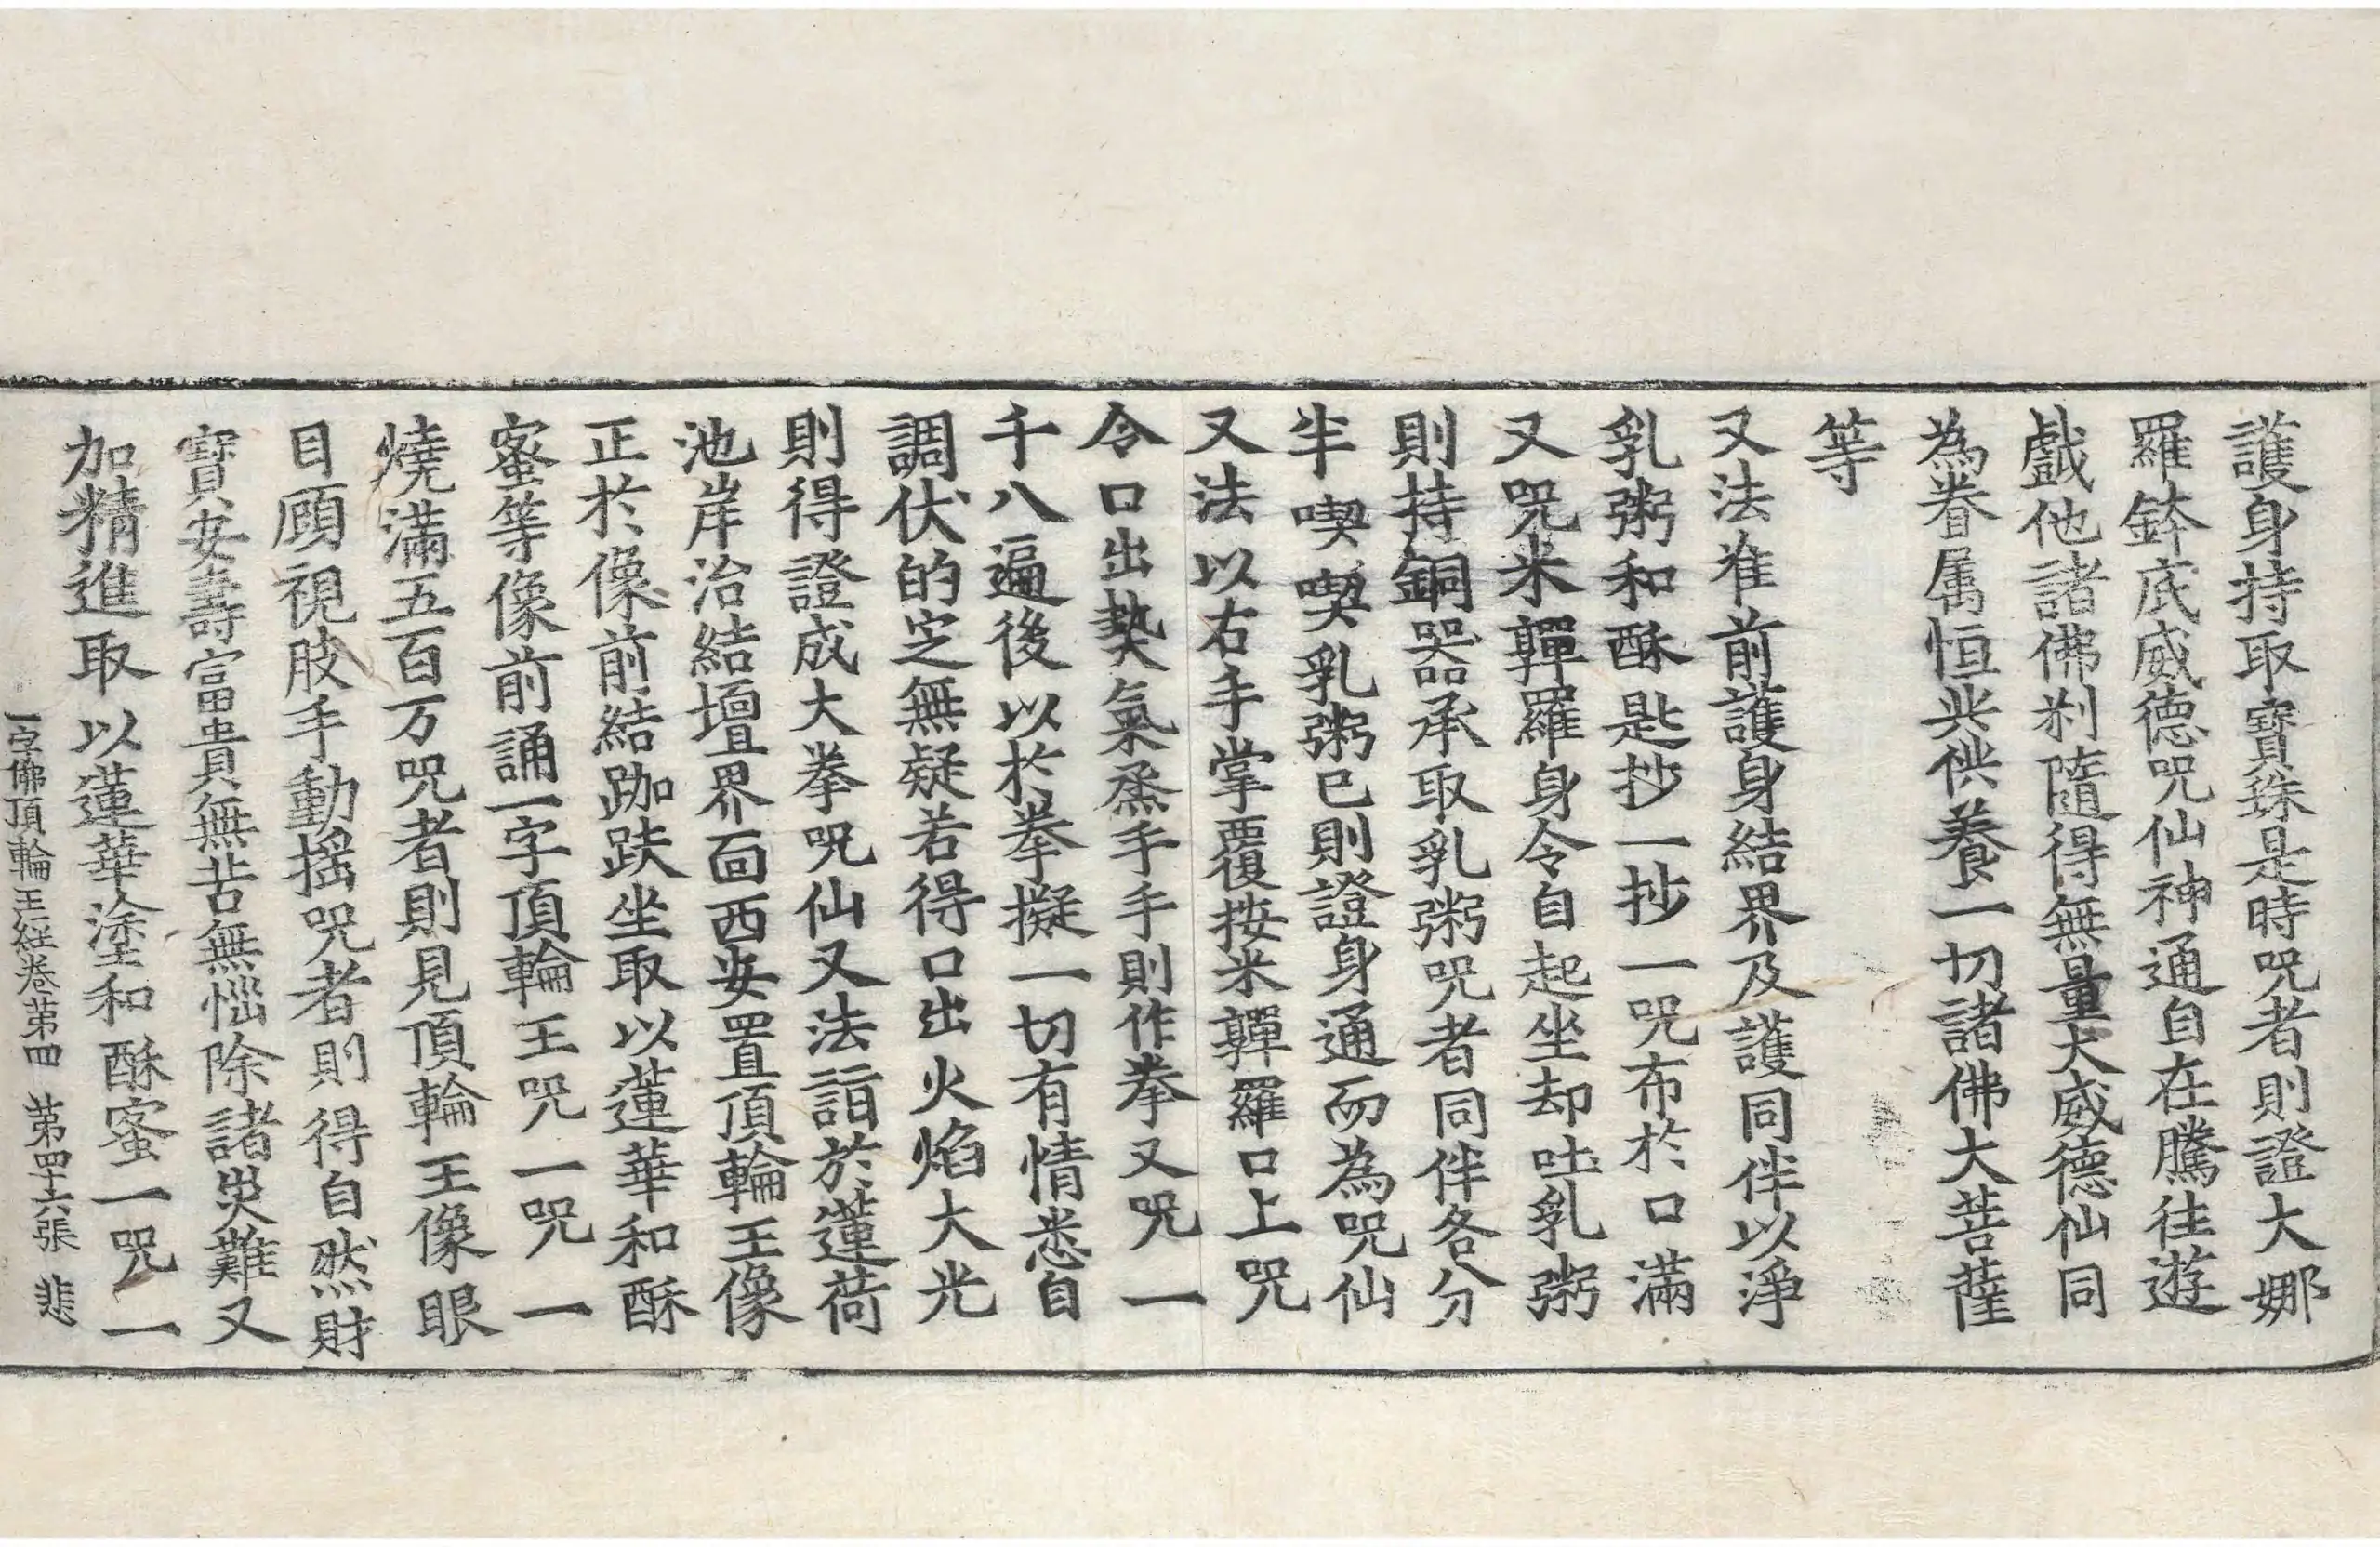 護身持取寶珠是時咒者則證大娜
羅鉢底威德咒仙神通自在騰往遊
戲他諸佛刹隨得無量大威德仙同
為眷属恒共供養一切諸佛大菩薩
等
又法准前護身結界及護同伴以淨
乳粥和酥匙抄一抄一咒布於口滿
又咒米嚲羅身令自起坐却吐乳粥
則持銅器承取乳粥咒者同伴各分
半喫喫乳粥已則證身通而為咒仙
又法以右手掌覆按米嚲羅口上咒
令口出𤍠氣烝手手則作拳又咒一
千八遍後以於拳擬一切有情悉自
調伏的定無疑若得口出火焰大光
則得證成大拳咒仙又法詣於蓮荷
池岸治結壇界面西安置頂輪王像
正於像前結跏趺坐取以蓮華和酥
蜜等像前誦一字頂輪王咒一咒一
燒滿五百万咒者則見頂輪王像眼
目顧視肢手動搖咒者則得自然財
寶安壽富貴無苦無惱除諸灾難又
加精進取以蓮華塗和酥蜜一咒一
一字佛頂輪王経卷苐四 苐四十六張 悲